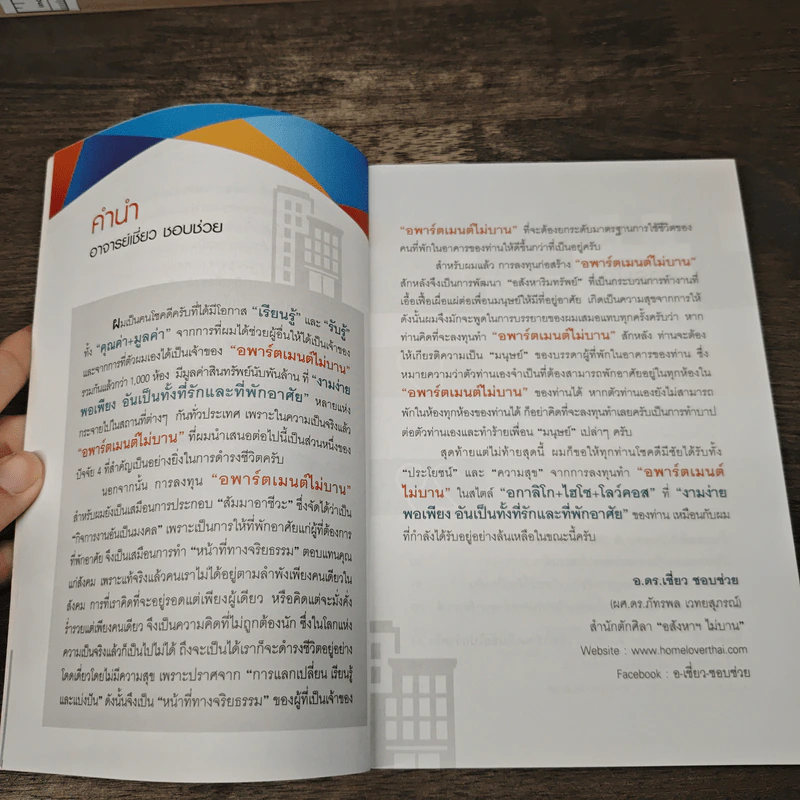 คำนำ
อาจารย์เชี่ยว ชอบช่วย
ผมเป็นคนโชคดีครับที่ได้มีโอกาส "เรียนรู้" และ "รับรู้"
ทั้ง "คุณค่า+มูลค่า" จากการที่ผมได้ช่วยผู้อื่นให้ได้เป็นเจ้าของ
และจากการที่ตัวผมเองได้เป็นเจ้าของ "อพาร์ตเมนต์ไม่บาน"
รวมกันแล้วกว่า 1,000 ห้อง มีมูลค่าสินทรัพย์นับพันล้าน ที่ "งามง่าย
พอเพียง อันเป็นทั้งที่รักและที่พักอาศัย" หลายแห่ง
กระจายไปในสถานที่ต่างๆ กันทั่วประเทศ เพราะในความเป็นจริงแล้ว
"อพาร์ตเมนต์ไม่บาน" ที่ผมนำเสนอต่อไปนี้เป็นส่วนหนึ่งของ
ปัจจัย 4 ที่สำคัญเป็นอย่างยิ่งในการดำรงชีวิตครับ
นอกจากนั้น การลงทุน "อพาร์ตเมนต์ไม่บาน"
สำหรับผมยังเป็นเสมือนการประกอบ "สัมมาอาชีวะ" ซึ่งจัดได้ว่าเป็น
"กิจการงานอันเป็นมงคล" เพราะเป็นการให้ที่พักอาศัยแก่ผู้ที่ต้องการ
ที่พักอาศัย จึงเป็นเสมือนการทำ "หน้าที่ทางจริยธรรม" ตอบแทนคุณ
แก่สังคม เพราะแท้จริงแล้วคนเราไม่ได้อยู่ตามลำพังเพียงคนเดียวใน
สังคม การที่เราคิดที่จะอยู่รอดแต่เพียงผู้เดียว หรือคิดแต่จะมั่งคั่ง
ร่ำรวยแต่เพียงคนเดียว จึงเป็นความคิดที่ไม่ถูกต้องนัก ซึ่งในโลกแห่ง
ความเป็นจริงแล้วก็เป็นไปไม่ได้ ถึงจะเป็นได้เราก็จะดำรงชีวิตอยู่อย่าง
โดดเดี่ยวโดยไม่มีความสุข เพราะปราศจาก "การแลกเปลี่ยน เรียนรู้
และแบ่งปัน" ดังนั้นจึงเป็น "หน้าที่ทางจริยธรรม" ของผู้ที่เป็นเจ้าของ
"อพาร์ตเมนต์ไม่บาน" ที่จะต้องยกระดับมาตรฐานการใช้ชีวิตของ
คนที่พักในอาคารของท่านให้ดีขึ้นกว่าที่เป็นอยู่ครับ
สำหรับผมแล้ว การลงทุนก่อสร้าง "อพาร์ตเมนต์ไม่บาน"
สักหลังจึงเป็นการพัฒนา "อสังหาริมทรัพย์" ที่เป็นกระบวนการทำงานที่
เอื้อเฟื้อเผื่อแผ่ต่อเพื่อนมนุษย์ให้มีที่อยู่อาศัย เกิดเป็นความสุขจากการให้
ดังนั้นผมจึงมักจะพูดในการบรรยายของผมเสมอแทบทุกครั้งครับว่า หาก
ท่านคิดที่จะลงทุนทำ "อพาร์ตเมนต์ไม่บาน" สักหลัง ท่านจะต้อง
ให้เกียรติความเป็น "มนุษย์" ของบรรดาผู้ที่พักในอาคารของท่าน ซึ่ง
หมายความว่าตัวท่านเองจำเป็นที่ต้องสามารถพักอาศัยอยู่ในทุกห้องใน
"อพาร์ตเมนต์ไม่บาน" ของท่านได้ หากตัวท่านเองยังไม่สามารถ
พักในห้องทุกห้องของท่านได้ ก็อย่าคิดที่จะลงทุนทำเลยครับเป็นการทำบาป
ต่อตัวท่านเองและทำร้ายเพื่อน "มนุษย์" เปล่าๆ ครับ
สุดท้ายแต่ไม่ท้ายสุดนี้ ผมก็ขอให้ทุกท่านโชคดีมีชัยได้รับทั้ง
"ประโยชน์" และ "ความสุข" จากการลงทุนทำ "อพาร์ตเมนต์
ไม่บาน" ในสไตล์ "อกาลิโก+ไฮโซ+โลว์คอส" ที่ "งามง่าย
พอเพียง อันเป็นทั้งที่รักและที่พักอาศัย" ของท่าน เหมือนกับผม
ที่กำลังได้รับอยู่อย่างล้นเหลือในขณะนี้ครับ
อ.ดร.เชี่ยว ชอบช่วย
(ผศ.ดร.ภัทรพล เวทยสุภรณ์)
สำนักตักศิลา "อสังหาฯ ไม่บาน"
Website : www.homeloverthai.com
Facebook : อ-เชี่ยว-ชอบช่วย